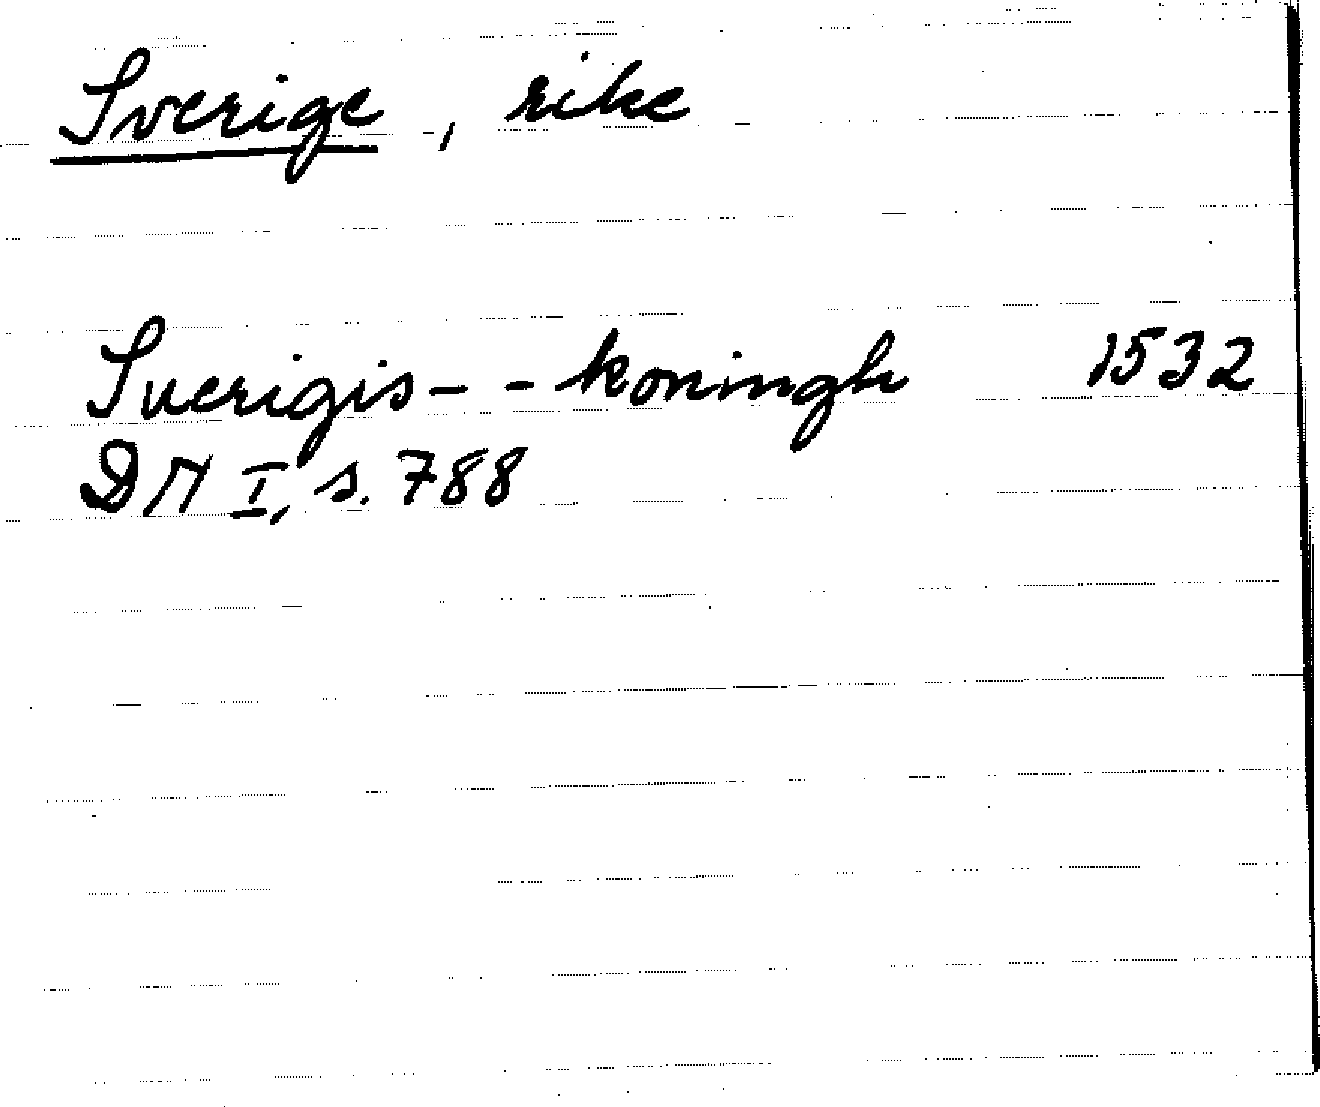 Sverige, rike
Sverigis - - koningh 1532
DN I, s. 788